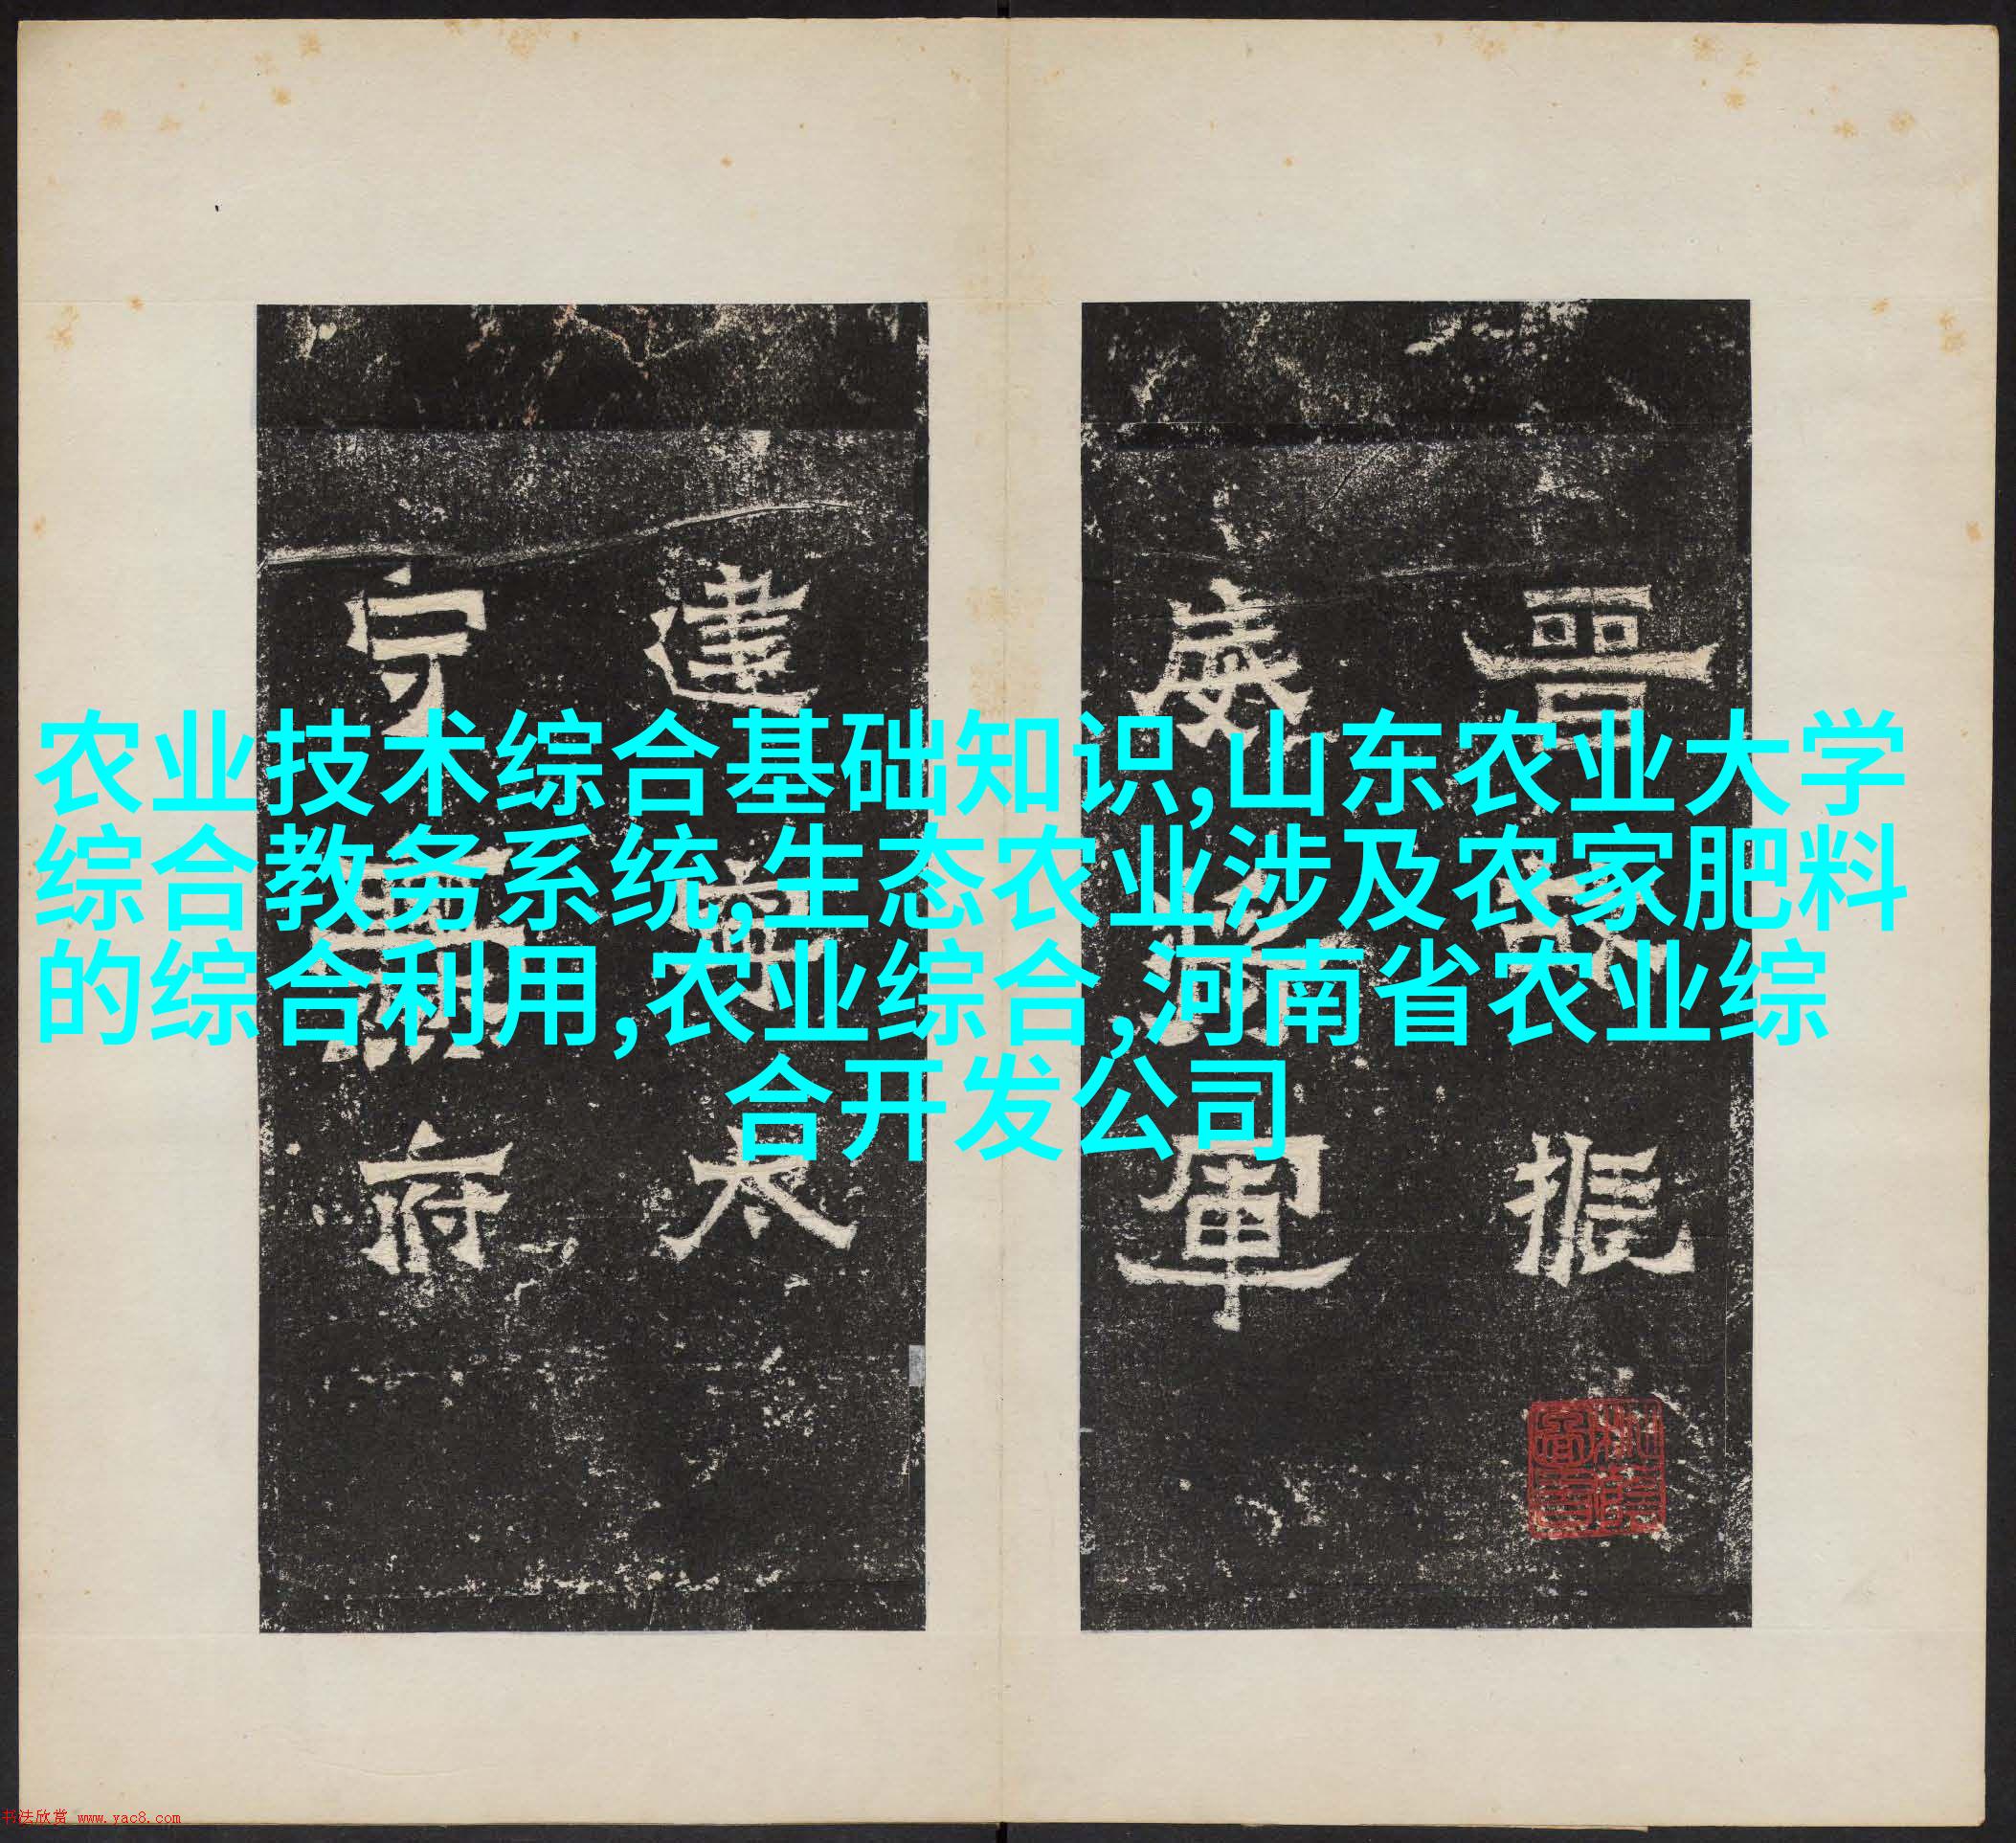 农业技术综合基础知识,山东农业大学
综合教务系统,生态农业涉及农家肥料
的综合利用,农业综合,河南省农业综
合开发公司
晉振
威軍
建太
守府
书法欣赏 www.yac8.com